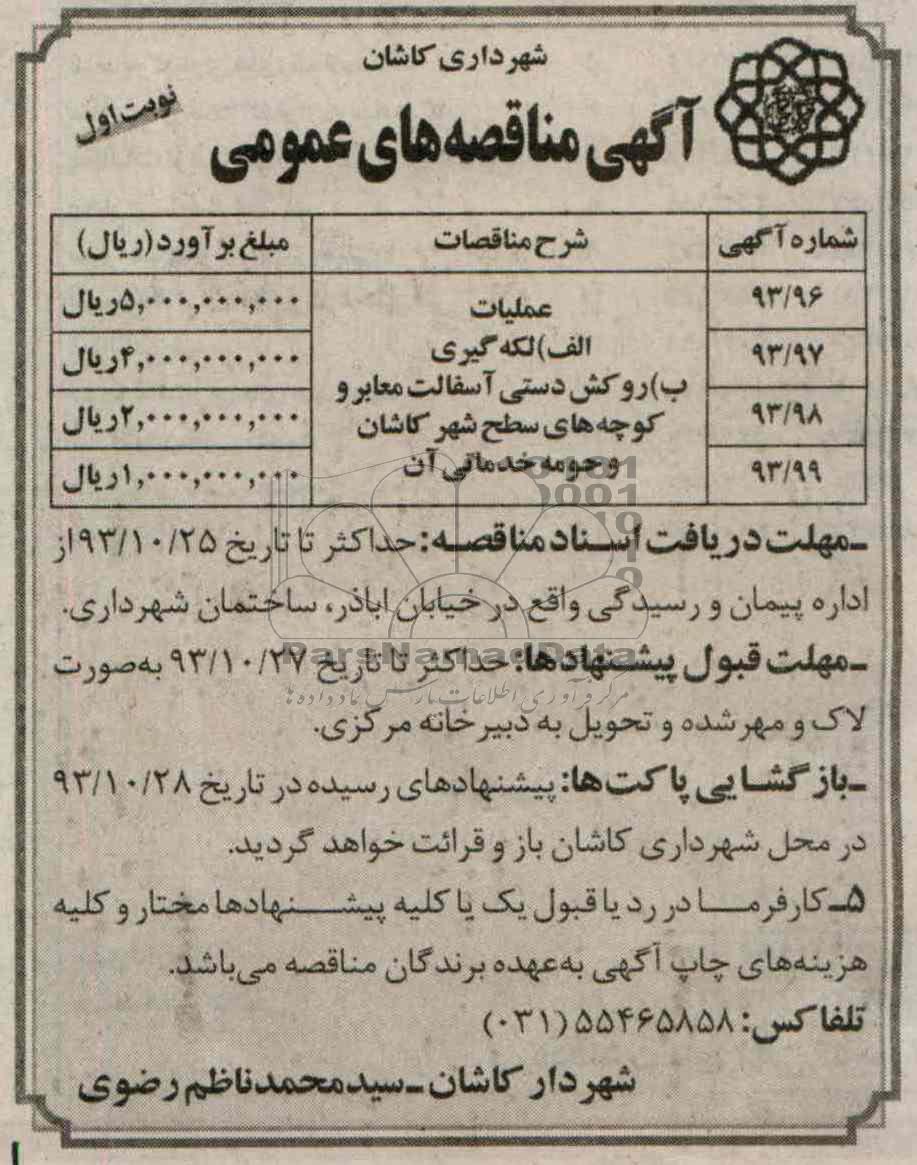 شهرداری کاشان
نوبت اول
آگهی مناقصه‌های عمومی
شماره آگهی شرح مناقصات مبلغ برآورد (ریال)
۹۳/۹۶ ۵,۰۰۰,۰۰۰,۰۰۰ریال
۹۳/۹۷ ۴,۰۰۰,۰۰۰,۰۰۰ریال
۹۳/۹۸ ۲,۰۰۰,۰۰۰,۰۰۰ریال
۹۳/۹۹ ۱,۰۰۰,۰۰۰,۰۰۰ریال
عملیات
الف)لکه گیری
ب)روکش دستی آسفالت معابر و
کوچه‌های سطح شهر کاشان
و حومه خدماتی آن
ـمهلت دریافت اسـناد مناقصـه: حداکثر تا تاریخ ۹۳/۱۰/۲۵ از
اداره پیمان و رسیدگی واقع در خیابان اباذر، ساختمان شهرداری.
ـمهلت قبول پیشنهادها: حداکثر تا تاریخ ۹۳/۱۰/۲۷ به‌صورت
لاک و مهر شده و تحویل به دبیرخانه مرکزی.
ـبازگشـایی پاکت‌ها: پیشنهادهای رسیده در تاریخ ۹۳/۱۰/۲۸
در محل شهرداری کاشان باز و قرائت خواهد گردید.
۵ـ کارفرمـا در رد یا قبول یک یا کلیه پیشـنهادها مختار و کلیه
هزینه‌های چاپ آگهی به‌عهده برندگان مناقصه می‌باشد.
تلفاکس: ۵۵۴۶۵۸۵۸ (۰۳۱)
شهردار کاشان ـ سیدمحمدناظم رضوی
ParsNamadData
مرکز فرآوری اطلاعات پارس نماد داده‌ها